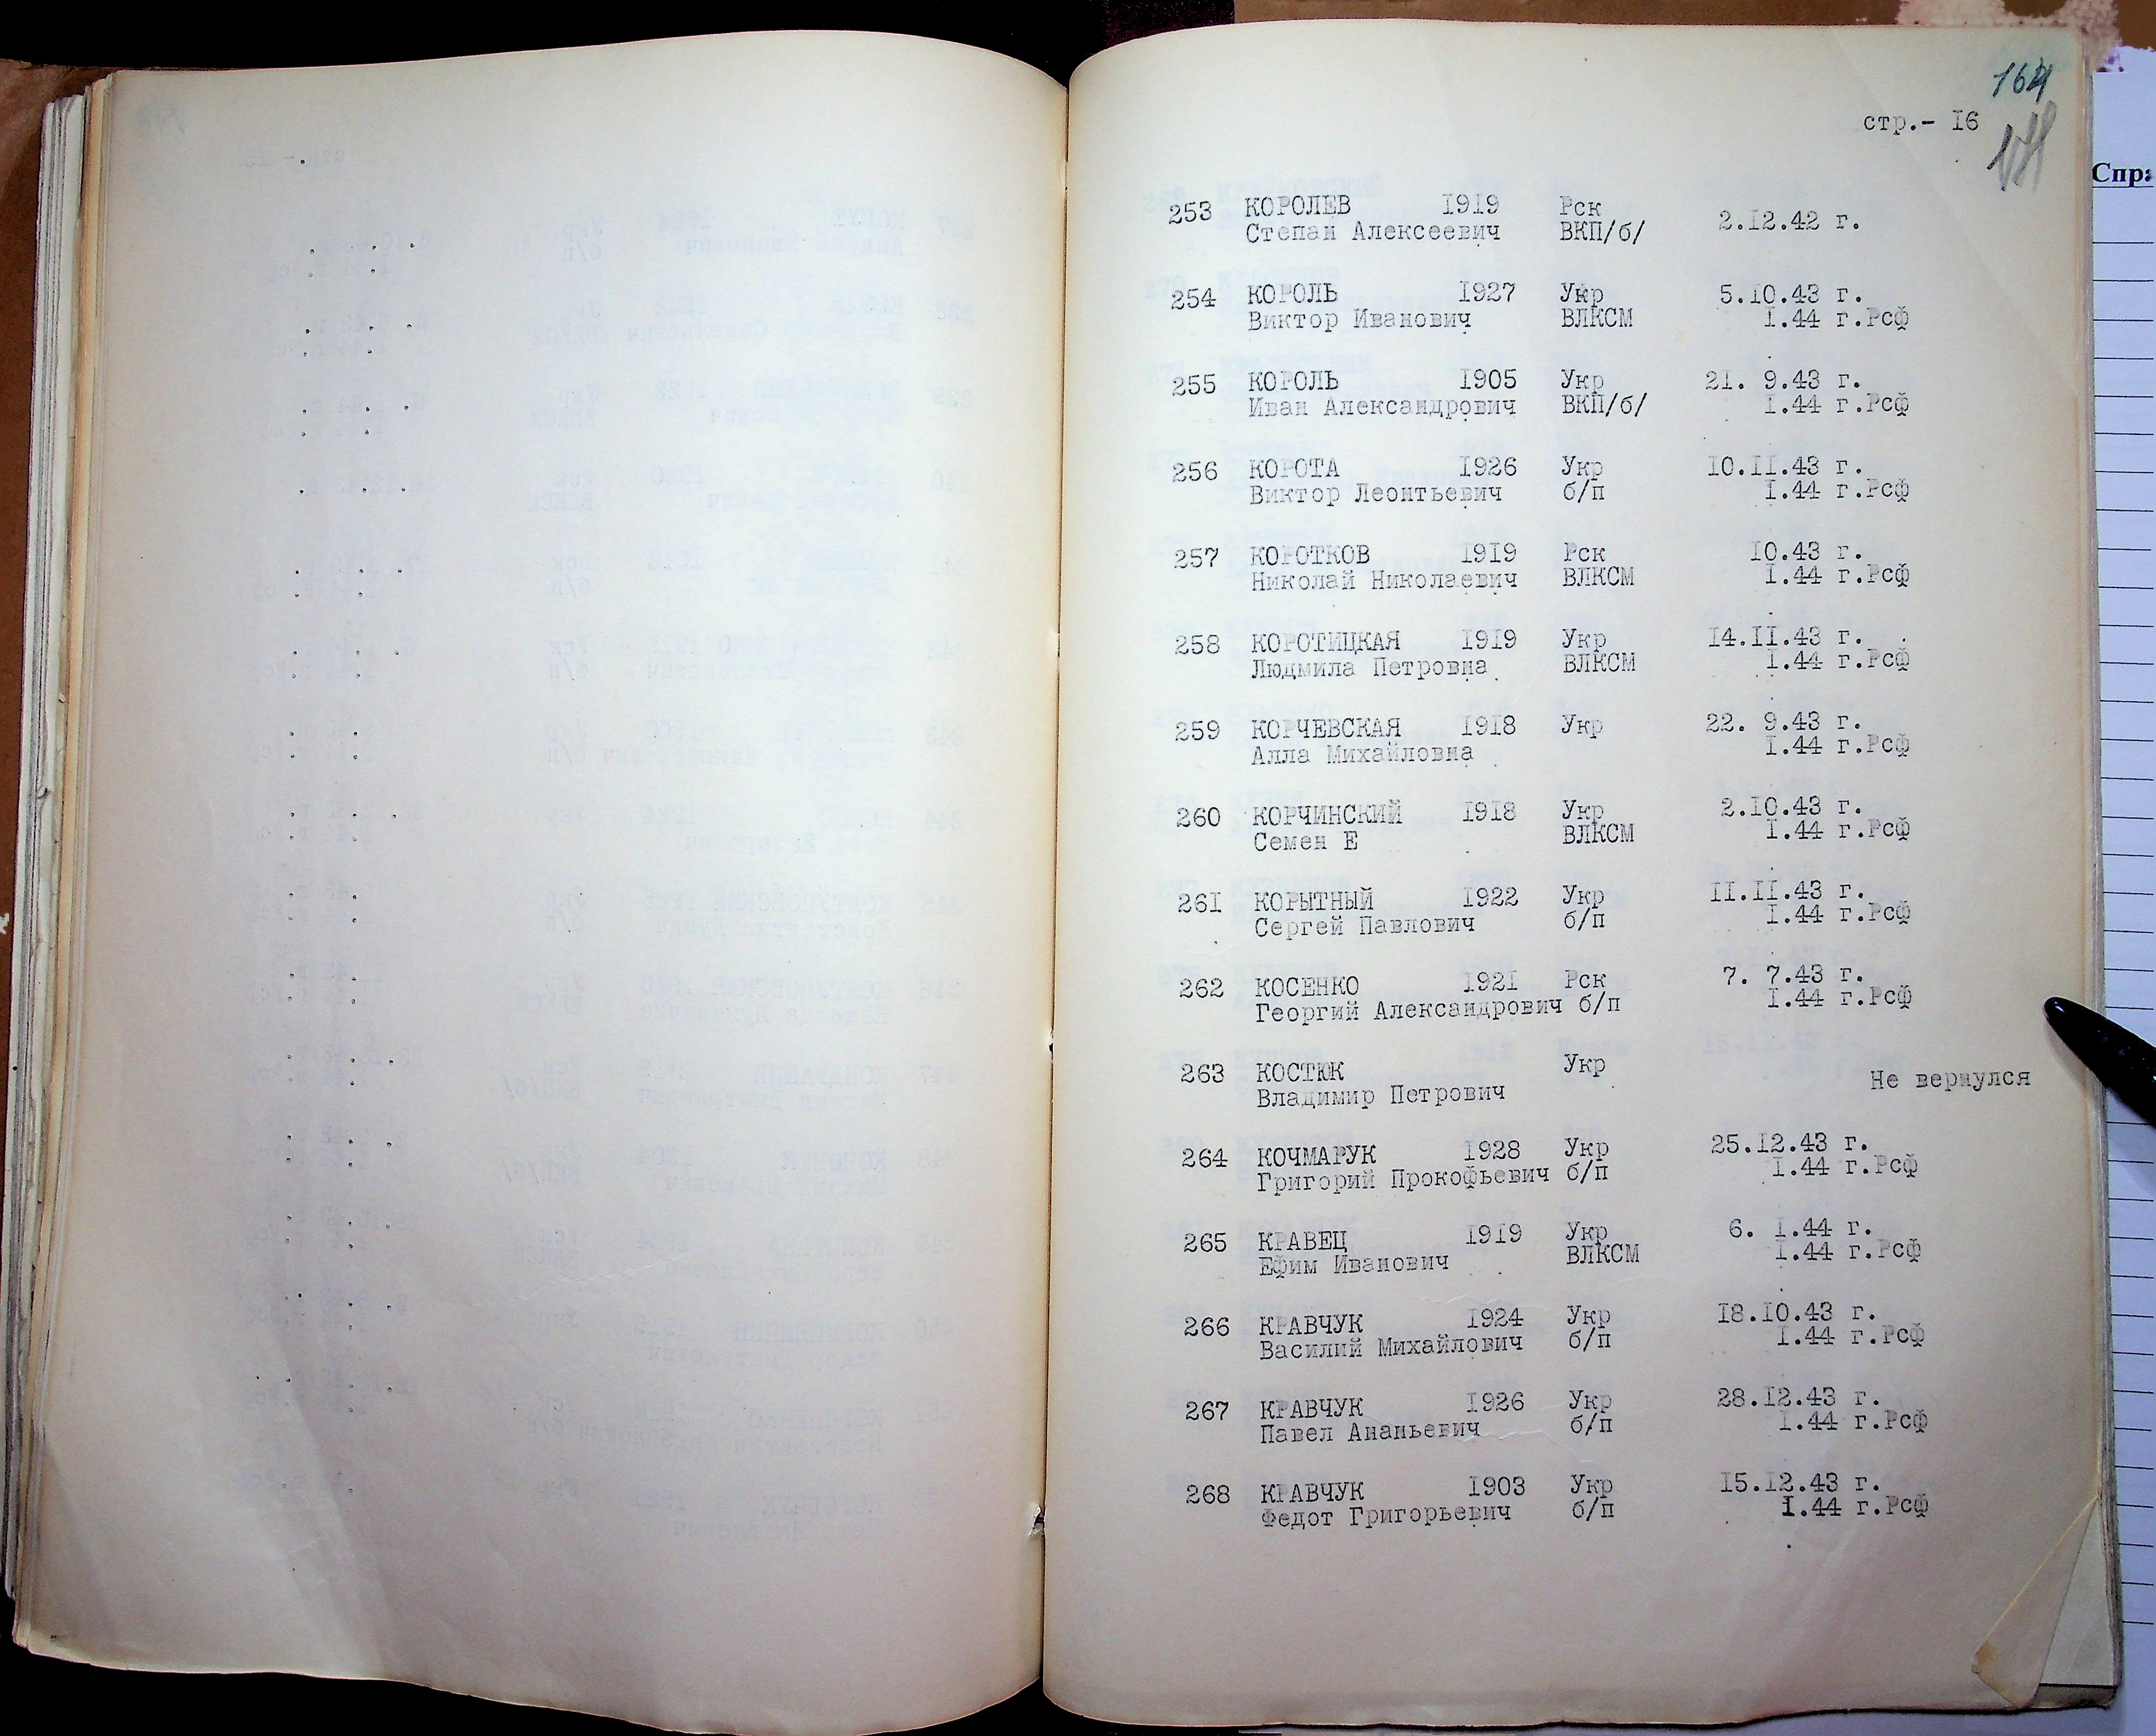 164
стр.- I6
Спра
253 КОРОЛЕВ I9I9 Рск 2.I2.42 г.
Степан Алексеевич ВКП/б/
254 КОРОЛЬ I927 Укр 5.I0.43 г.
Виктор Иванович ВЛКСМ I.44 г.Рсф
255 КОРОЛЬ I905 Укр 2I. 9.43 г.
Иван Александрович ВКП/б/ I.44 г.Рсф
256 КОРОТА I926 Укр I0.II.43 г.
Виктор Леонтьевич б/п I.44 г.Рсф
257 КОРОТКОВ I9I9 Рск I0.43 г.
Николай Николаевич ВЛКСМ I.44 г.Рсф
258 КОРОТИЦКАЯ I9I9 Укр I4.II.43 г.
Людмила Петровна ВЛКСМ I.44 г.Рсф
259 КОРЧЕВСКАЯ I9I8 Укр 22. 9.43 г.
Алла Михайловна I.44 г.Рсф
260 КОРЧИНСКИЙ I9I8 Укр 2.I0.43 г.
Семен Е ВЛКСМ I.44 г.Рсф
26I КОРЫТНЫЙ I922 Укр II.II.43 г.
Сергей Павлович б/п I.44 г.Рсф
262 КОСЕНКО I92I Рск 7. 7.43 г.
Георгий Александрович б/п I.44 г.Рсф
263 КОСТЮК Укр Не вернулся
Владимир Петрович
264 КОЧМАРУК I928 Укр 25.I2.43 г.
Григорий Прокофьевич б/п I.44 г.Рсф
265 КРАВЕЦ I9I9 Укр 6. I.44 г.
Ефим Иванович ВЛКСМ I.44 г.Рсф
266 КРАВЧУК I924 Укр I8.I0.43 г.
Василий Михайлович б/п I.44 г.Рсф
267 КРАВЧУК I926 Укр 28.I2.43 г.
Павел Ананьевич б/п I.44 г.Рсф
268 КРАВЧУК I903 Укр I5.I2.43 г.
Федот Григорьевич б/п I.44 г.Рсф